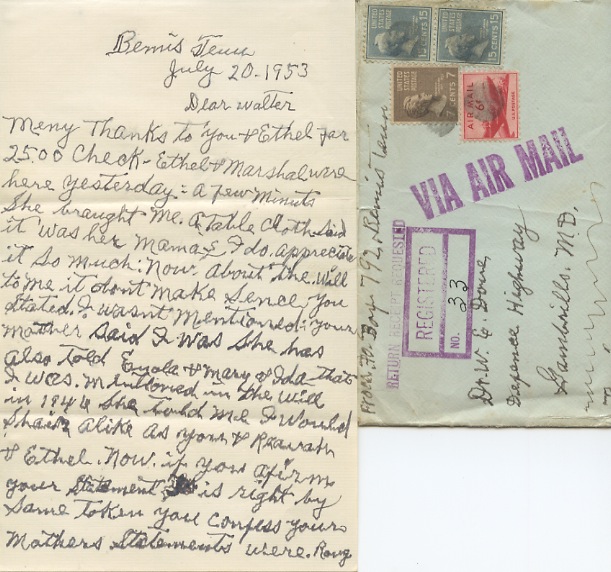 Bemis Tenn
July 20-1953
Dear Walter
Meny Thanks to You & Ethel for
25.00 Check - Ethel & Marshal were
here yesterday - a few minuts
She braught me a Table Cloth said
it was her Mama & I do appreciate
it so much. Now about the will
to me it dont make Sence you
stated I wasnt mentioned: your
mother said I was she has
also told Eula & Mary & Ida that
I was mentioned in the will
in 1944 She told me I Would
Shair alike as you &
& Ethel. Now if you afirm
your Statement is right by
same token you confess your
Mothers Statements were. Rong
UNITED STATES POSTAGE
15 CENTS 15
15 CENTS 15
UNITED STATES POSTAGE
7 CENTS 7
AIR MAIL
6¢
U.S. POSTAGE
VIA AIR MAIL
RETURN RECEIPT REQUESTED
REGISTERED
NO. 33
From Box 792, Bemis Tenn
Dr. W. E
Defence Highway
Gambrills, M.D.